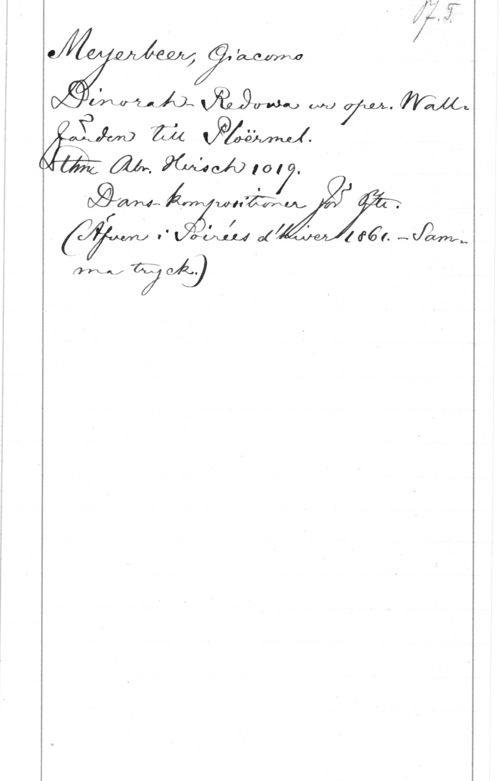 Pf. 5.
Meyerbeer, Giacomo
Dinorah-Redowa ur oper. Wall-
färden till Ploërmel.
Sthm Abr. Hirsch 1019.
Dans-kompositioner för Pfte.
(Äfven i Soirées d'hiver 1861. - Sam-
ma tryck.)